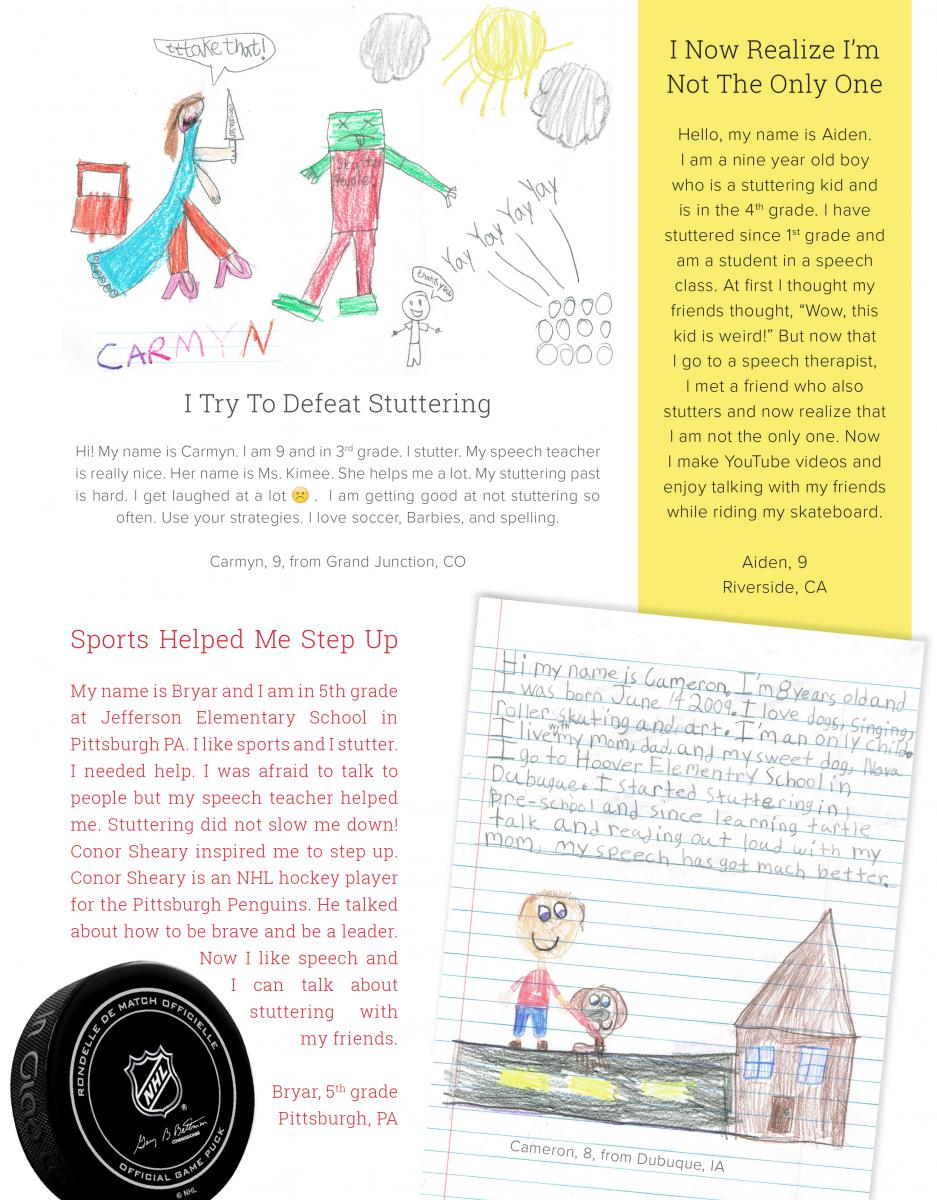 tttake that!
Yay Yay Yay Yay
thank you
CARMYN
I Try To Defeat Stuttering
Hi! My name is Carmyn. I am 9 and in 3rd grade. I stutter. My speech teacher
is really nice. Her name is Ms. Kimee. She helps me a lot. My stuttering past
is hard. I get laughed at a lot ☹️ . I am getting good at not stuttering so
often. Use your strategies. I love soccer, Barbies, and spelling.
Carmyn, 9, from Grand Junction, CO
I Now Realize I'm
Not The Only One
Hello, my name is Aiden.
I am a nine year old boy
who is a stuttering kid and
is in the 4th grade. I have
stuttered since 1st grade and
am a student in a speech
class. At first I thought my
friends thought, “Wow, this
kid is weird!” But now that
I go to a speech therapist,
I met a friend who also
stutters and now realize that
I am not the only one. Now
I make YouTube videos and
enjoy talking with my friends
while riding my skateboard.
Aiden, 9
Riverside, CA
Sports Helped Me Step Up
My name is Bryar and I am in 5th grade
at Jefferson Elementary School in
Pittsburgh PA. I like sports and I stutter.
I needed help. I was afraid to talk to
people but my speech teacher helped
me. Stuttering did not slow me down!
Conor Sheary inspired me to step up.
Conor Sheary is an NHL hockey player
for the Pittsburgh Penguins. He talked
about how to be brave and be a leader.
Now I like speech and
I can talk about
stuttering with
my friends.
Bryar, 5th grade
Pittsburgh, PA
RONDELLE DE MATCH OFFICIELLE
NHL
®
Gary B Bettman
COMMISSIONER
OFFICIAL GAME PUCK
© NHL
Hi my name is Cameron. I'm 8 years old and
I was born June 14 2009. I love dogs, singing,
roller skating and art. I'm an only child.
I live with my mom, dad, and my sweet dog, Nova
I go to Hoover Elementry School in
Dubuque. I started stuttering in
pre-school and since learning turtle
talk and reading out loud with my
mom, my speech has got much better.
Cameron, 8, from Dubuque, IA